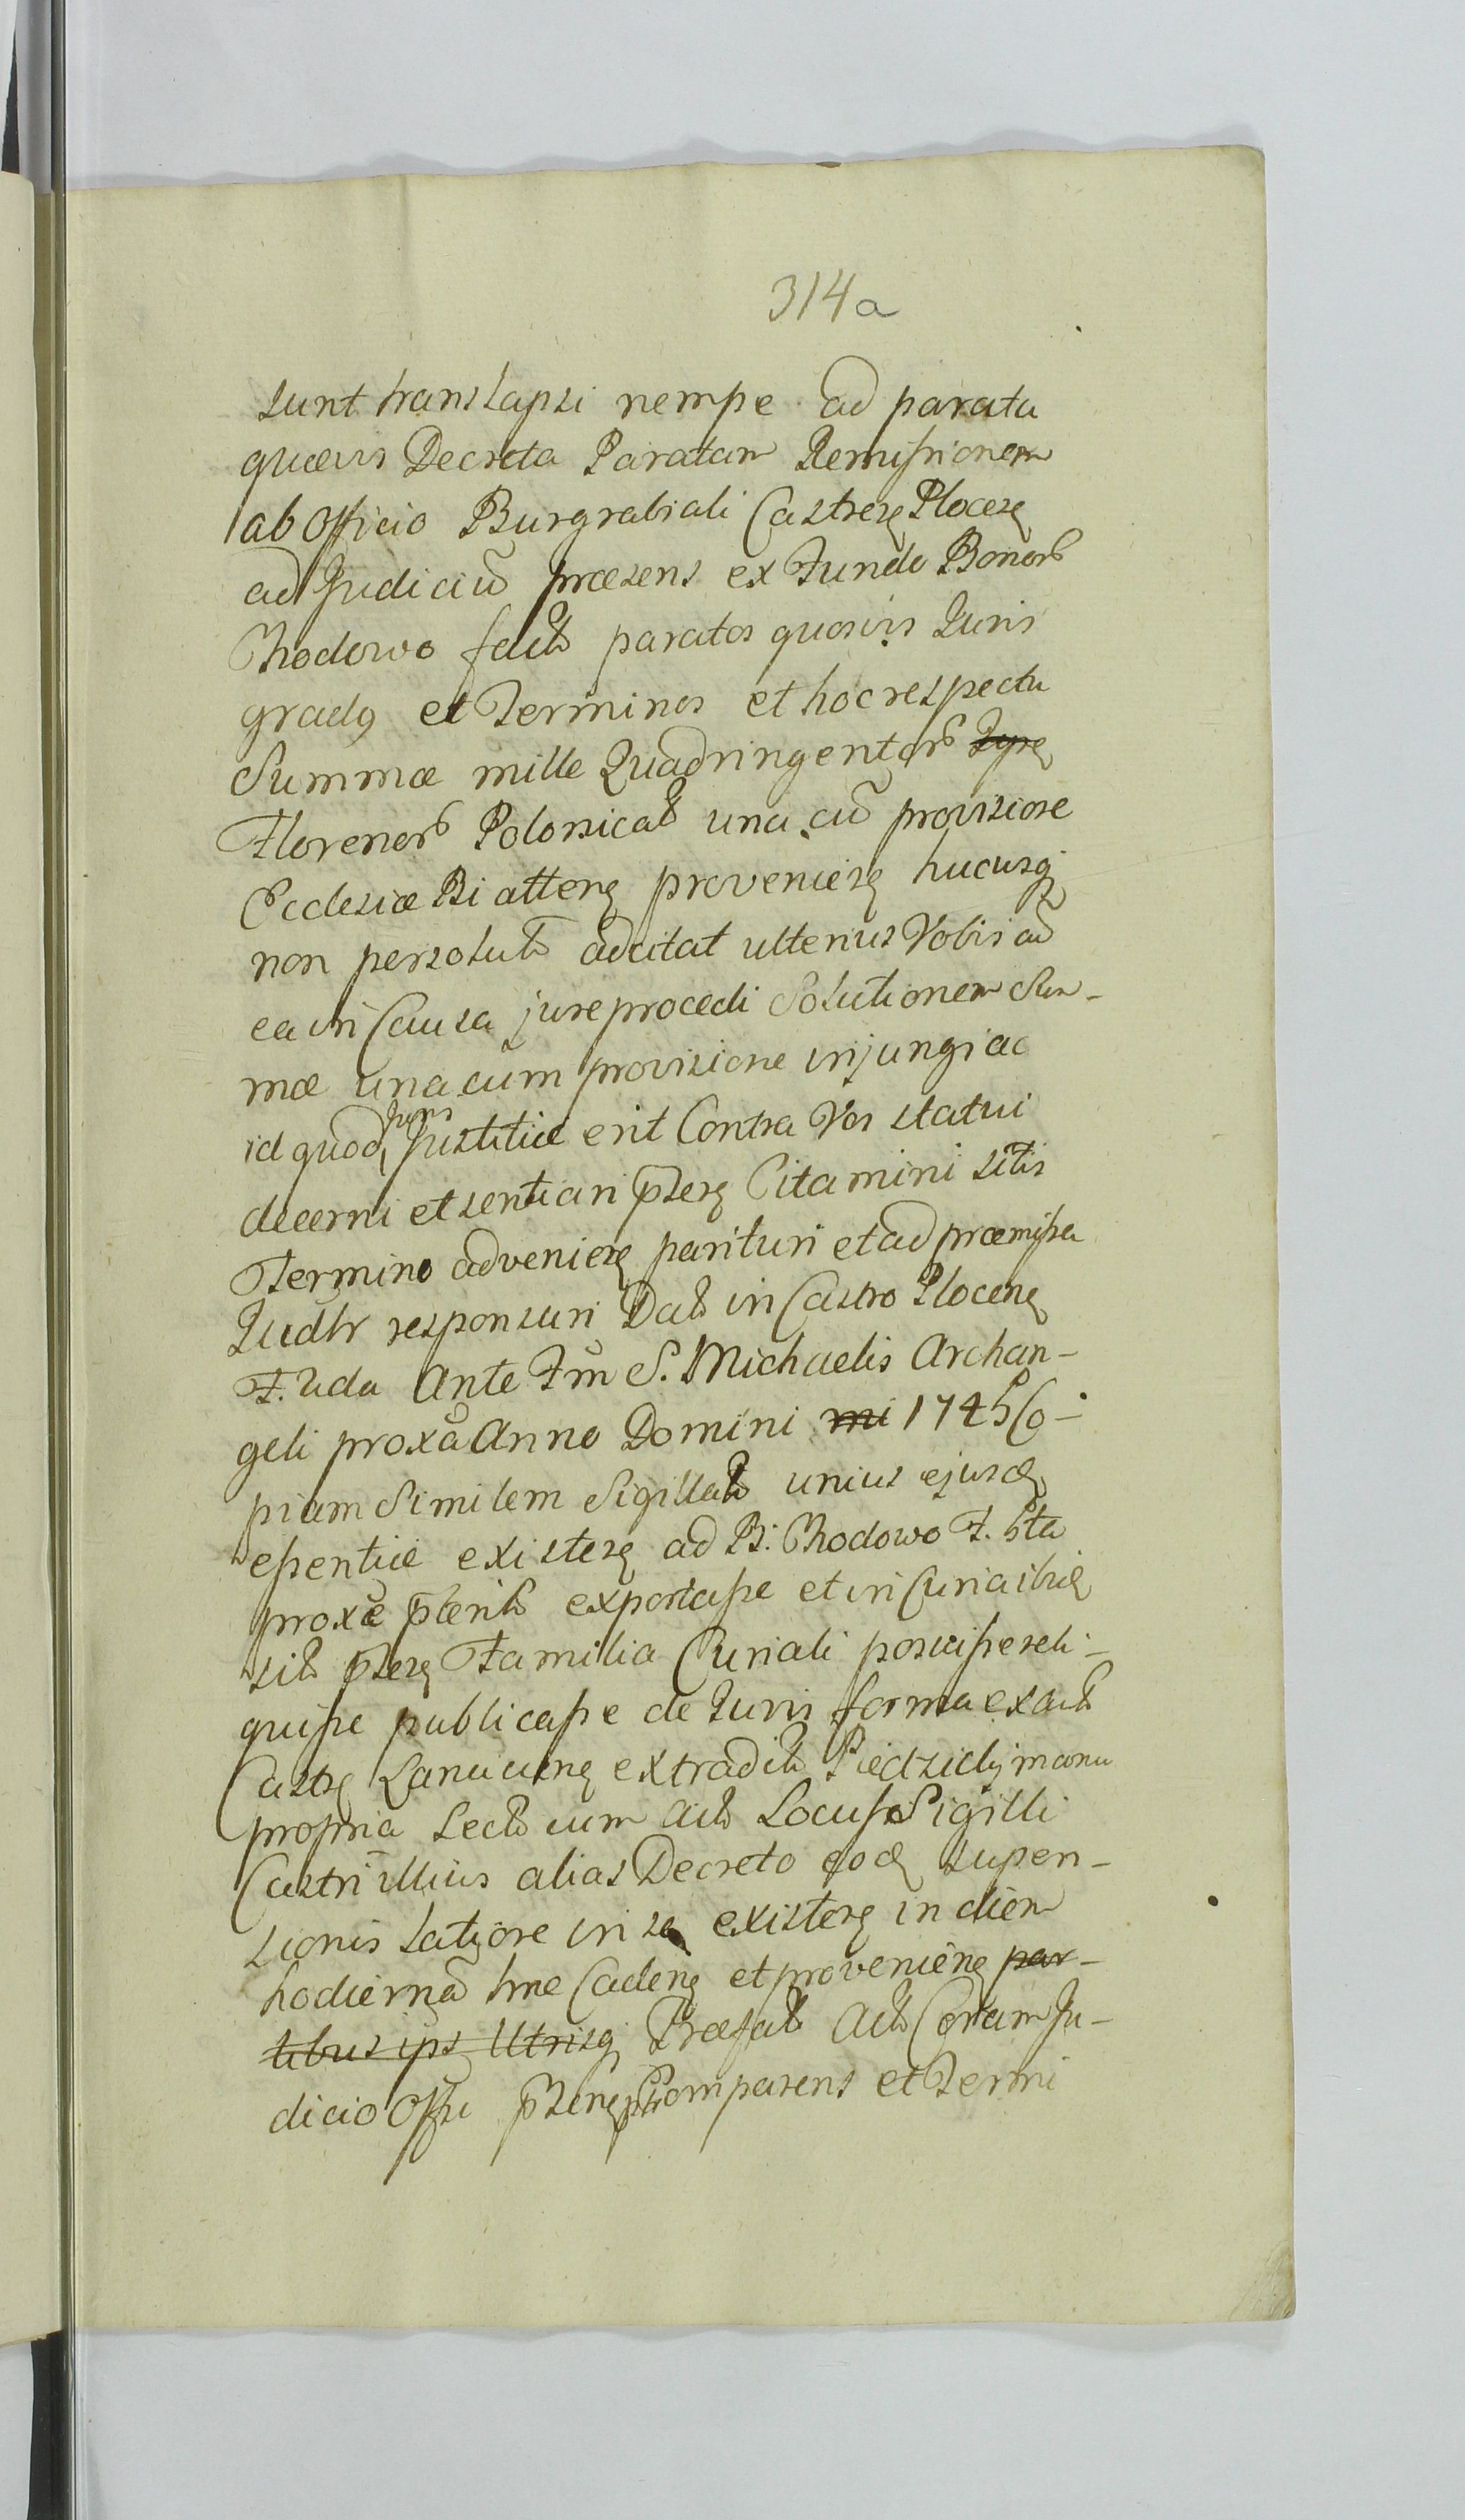 314a
sunt translapsi nempe ad parata
quævis Decreta Paratam Remissionem
ab Officio Burgrabiali Castrens Plocens
ad Judiciũ præsens ex Fundo Bonor
Chodowo fact paratos quosvis Juris
gradq et Terminos et hoc respectu
Summæ mille Quadringentor
Florenor Polonical una cũ provisione
Ecclesiæ Biatten provenien hucusq
non persolut adcitat ulterius Vobiscũ
ea in Causa jure procedi Solutionem Sum-
mæ una cum provisione injungi ac
id quod Juris Justitiæ erit Contra Vos statui
decerni et sentiari pser Citamini sitis
Termino advenien parituri et ad præmissa
Judltr responsuri Dat in Castro Plocen
F. 2da Ante Fm̃ S. Michaelis Archan-
geli proxã Anno Domini mi 1745 Co-
piam Similem Sigillat unius ejusd
essentiæ existen ad B: Chodowo F. 5ta
proxe pterit exportasse et in Curia ibid
sit psen Familia Curiali posuisse reli-
quisse publicasse de Juris forma exact
Castr extradit Piedzicki manu
propria Lect cum Act Locus Sigilli
Castri illius alias Decreto eod supen-
sionis latiore in se existen in diem
hodiernã hne Caden et provenien par-
tibus ips Utrisq Præfat Act Coram Ju-
dicio Offo psen ptr Comparens et Termi